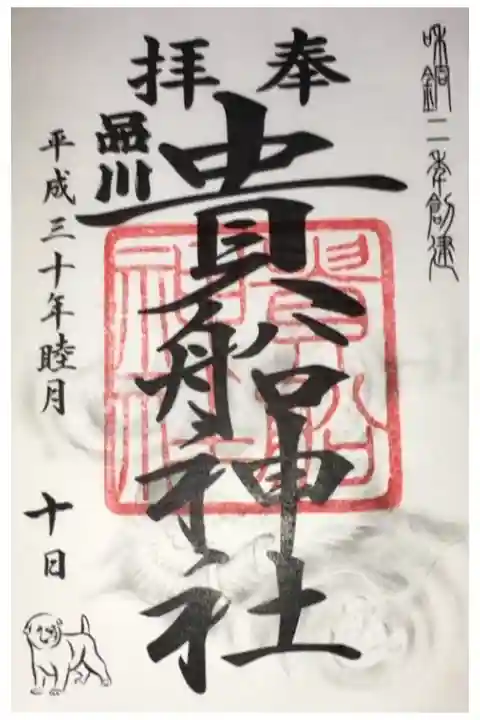 和銅二年創建
奉拝
貴船神社
貴船
神社
品川
平成三十年睦月
十日